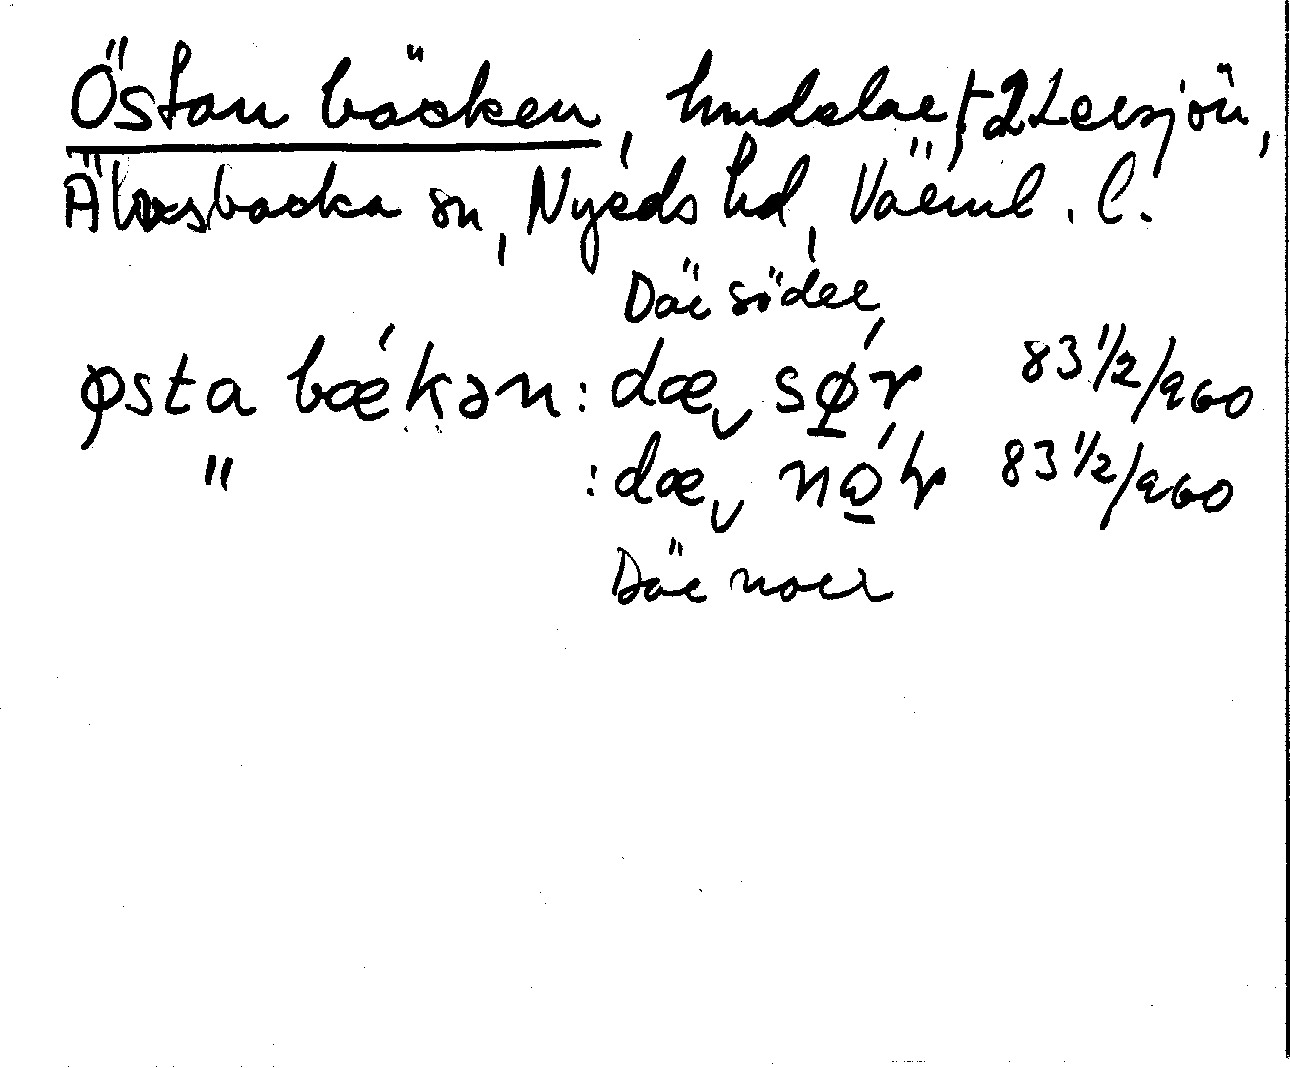 Östan bäcken, hmdelar, +2 Lersjön,
Älvsbacka sn, Nyeds hd, Värml. l.
Där söder
østa bækən: dæ, sǿ̱r 83 1/2/960
" : dæ, nǫ́r 83 1/2/960
Där norr